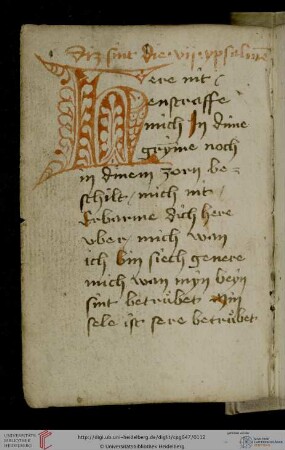 Diz sint die vij psalmē
Here nit
enstraffe
mich In dine
gryme noch
in dinem zorn be
schilt mich nit
Erbarme dich here
vber mich wan
ich bin siech genere
mich wan myn beyn
sint betrůbet Min
sele ist sere betrůbet
http://digi.ub.uni-heidelberg.de/diglit/cpg547/0010
© Universitätsbibliothek Heidelberg